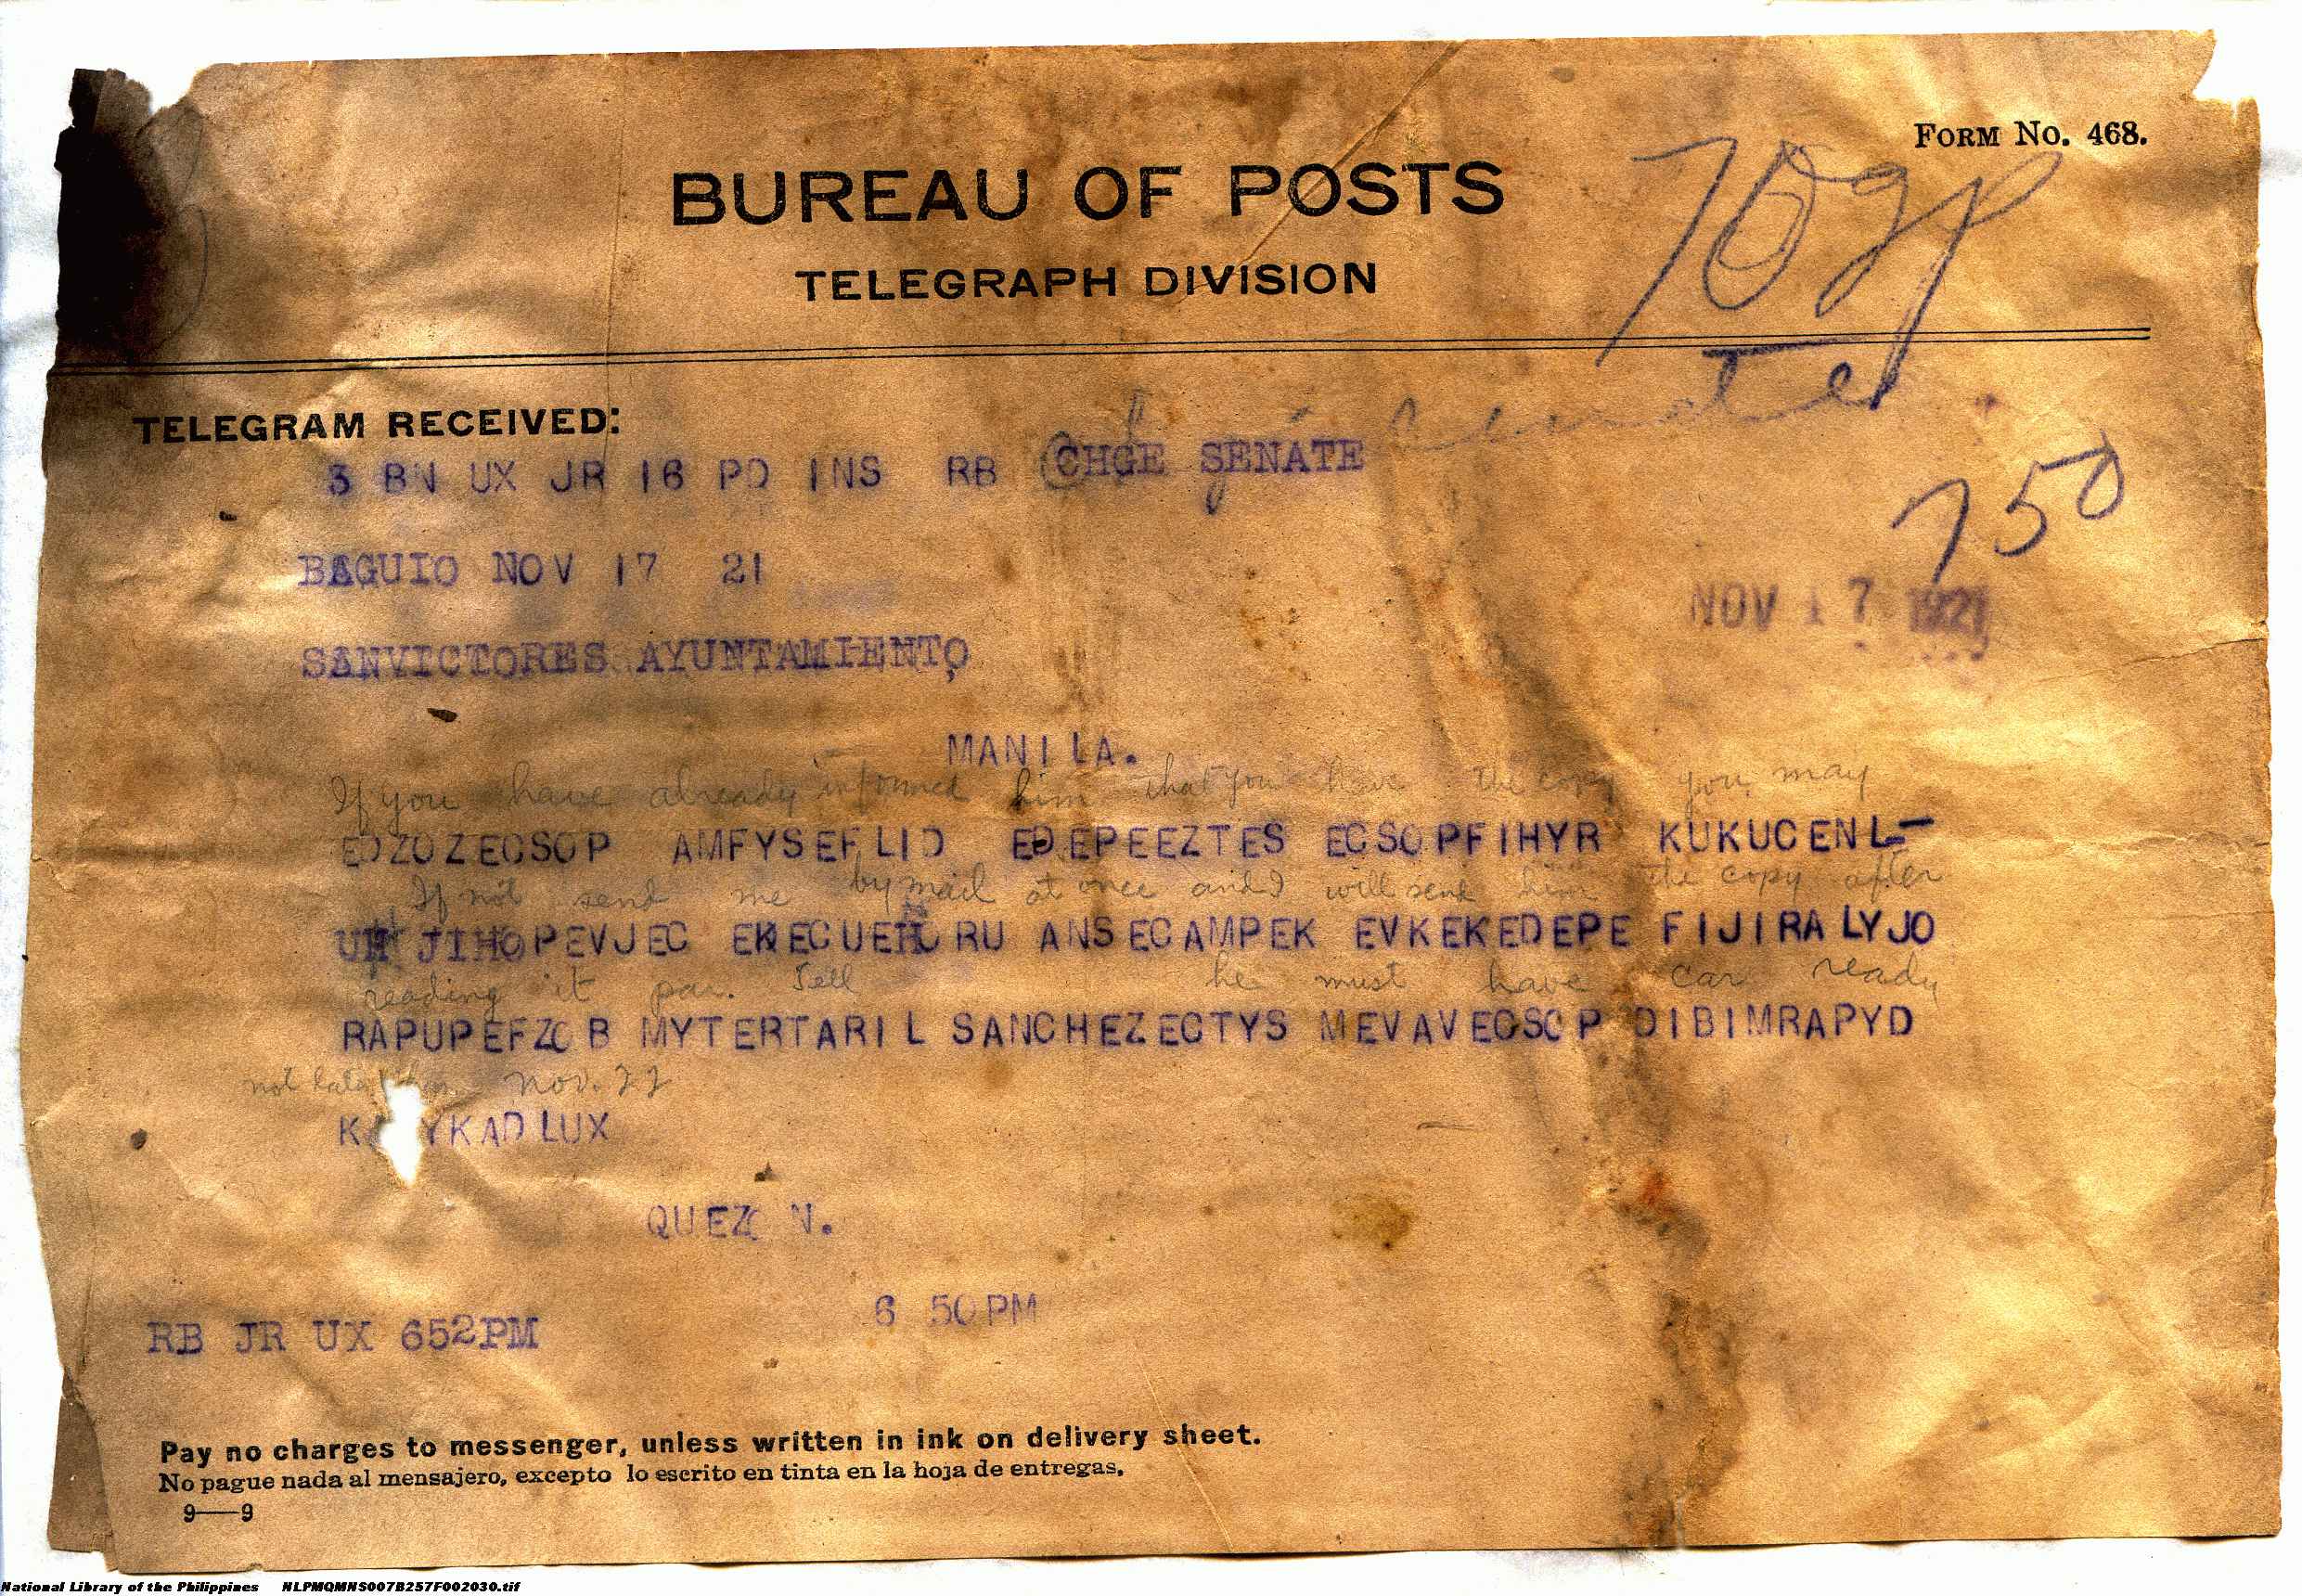 FORM NO. 468.
BUREAU OF POSTS
TELEGRAPH DIVISION
TELEGRAM RECEIVED:
3 BN UX JR 16 PD INS RB CHGE SENATE
750
BAGUIO NOV 17 21
NOV 17 1921
SANVICTORES AYUNTAMIENTO
MANILA.
If you have already informed him that you have the copy you may
EDZOZECSOP AMFYSEFLID EDEPEEZTES ECSOPFIHYR KUKUCENL-
If not send me by mail at once and I will send him the copy after
UH JIHOPEVJEC EKECUEHORU ANSECAMPEK EVKEKEDEPE FIJIRALYJO
reading it par. Tell he must have car ready
RAPUPEFZOB MYTERTARIL SANCHEZECTYS MEVAVECSOP DIBIMRAPYD
not Nov. 22
YKADLUX
QUEZON.
6 50PM
RB JR UX 652PM
Pay no charges to messenger, unless written in ink on delivery sheet.
No pague nada al mensajero, excepto lo escrito en tinta en la hoja de entregas.
9—9
National Library of the Philippines NLPMQMNS007B257F002030.tif